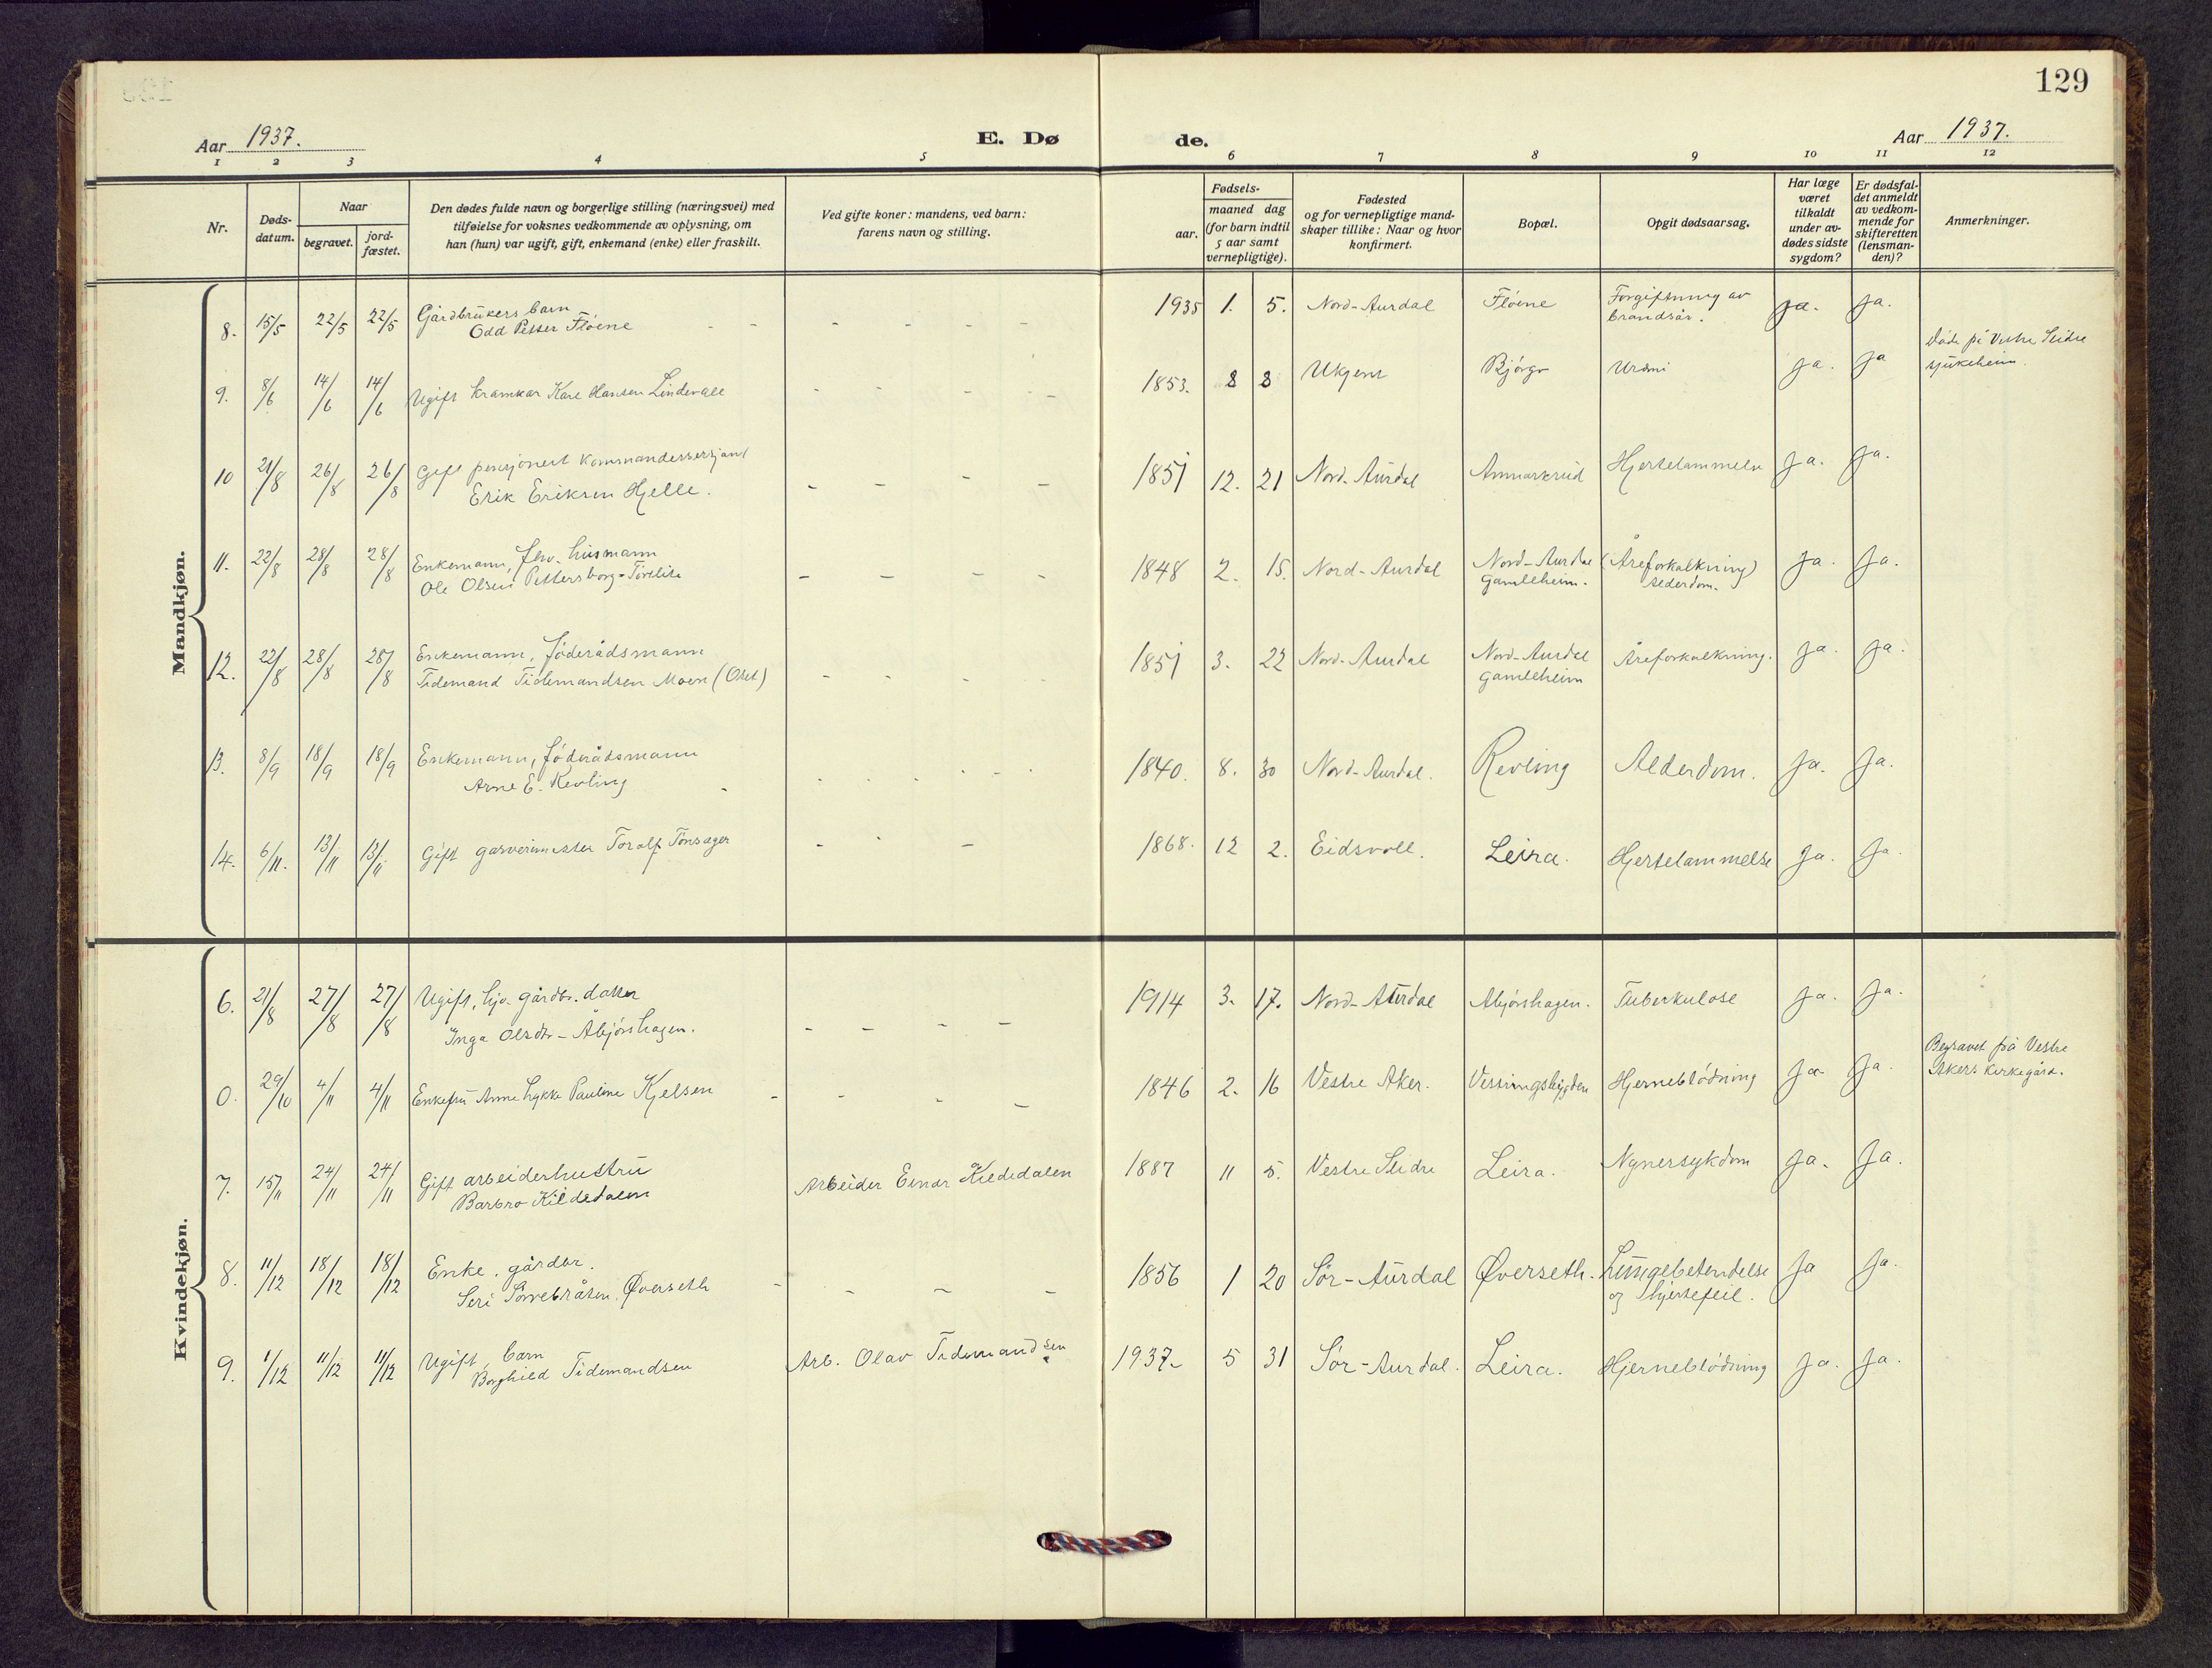 129
Aar 1937.
E. Dø
de.
Aar 1937.
1 2 3 4 5 6 7 8 9 10 11 12
Nr.
Døds-
datum.
Naar
begravet.
jord-
fæstet.
Den dødes fulde navn og borgerlige stilling (næringsvei) med
tilføielse for voksnes vedkommende av oplysning, om
han (hun) var ugift, gift, enkemand (enke) eller fraskilt.
Ved gifte koner: mandens, ved barn:
farens navn og stilling.
Fødsels-
aar.
maaned dag
(for barn indtil
5 aar samt
vernepligtige).
Fødested
og for vernepligtige mand-
skaper tillike: Naar og hvor
konfirmert.
Bopæl.
Opgit dødsaarsag.
Har læge
været
tilkaldt
under av-
dødes sidste
sygdom?
Er dødsfal-
det anmeldt
av vedkom-
mende for
skifteretten
(lensman-
den)?
Anmerkninger.
Mandkjøn.
8. 15/5 22/5 22/5 Gårdbrukers barn
Odd Petter Fløene - - - - - - 1935 1. 5. Nord-Aurdal Fløene Forgiftning av
brandsår. ja. ja.
9. 8/6 14/6 14/6 Ugift kramkar Karl Hansen Lindevall - - - - - 1853. 8 8 Ukjent Bjørgo Uremi ja. ja Døde på Vestre Slidre
sjukeheim.
10 21/8 26/8 26/8 Gift pensjonert kommandersersjant
Erik Eriksen Hjelle. - - - - 1851 12. 21 Nord-Aurdal Hjertelammelse ja. ja.
11. 22/8 28/8 28/8 Enkemann, fhv. husmann
Ole Olsen Pettersborg-Tørtlite - - - - 1848 2. 15. Nord-Aurdal Nord-Aurdal
Gamleheim. (Åreforkalkning)
Alderdom. ja. ja.
12. 22/8 28/8 28/8 Enkemann, føderådsmann
Tidemand Tidemandsen Moen (Oset) - - - - 1851 3. 22 Nord-Aurdal Nord-Aurdal
Gamleheim Åreforkalkning. ja. ja.
13. 8/9 18/9 18/9 Enkemann, føderådsmann
Arne E. Revling - - - - - 1840. 8. 30 Nord-Aurdal. Revling Alderdom. ja. ja.
14. 6/11. 13/11 13/11 Gift garverimester Toralf Tonsager - - - 1868. 12 2. Eidsvoll. Leira. Hjertelammelse ja. ja.
Kvindekjøn.
6. 21/8 27/8 27/8 Ugift, hjv. gårdbr. datter
Inga Olsdtr-Åbjørshagen. - - - - 1914 3. 17. Nord-Aurdal Åbjørshagen. Tuberkulose ja. ja.
0. 29/10 4/11 4/11 Enkefru Anne Lykke Pauline Kjelsen - - - - 1846 2. 16 Vestre Aker. Hjerneblødning ja. ja. Begravet på Vestre
Akers kirkegård.
7. 15/11 24/11 24/11 Gift arbeiderhustru
Barbro Kildedalen Arbeider Einar Kildedalen 1887 11 5. Vestre Slidre Leira. Nyresykdom ja. ja.
8. 11/12 18/12 18/12 Enke, gårdbr.
Øverseth - - - - 1856 1 20 Sør-Aurdal Øverseth. Lungebetendelse
og hjertefeil. ja ja.
9. 1/12 11/12 11/12 Ugift, barn
Borghild Tidemandsen Arb. Olav Tidemandsen 1937. 5 31 Sør-Aurdal. Leira. Hjerneblødning ja. ja.